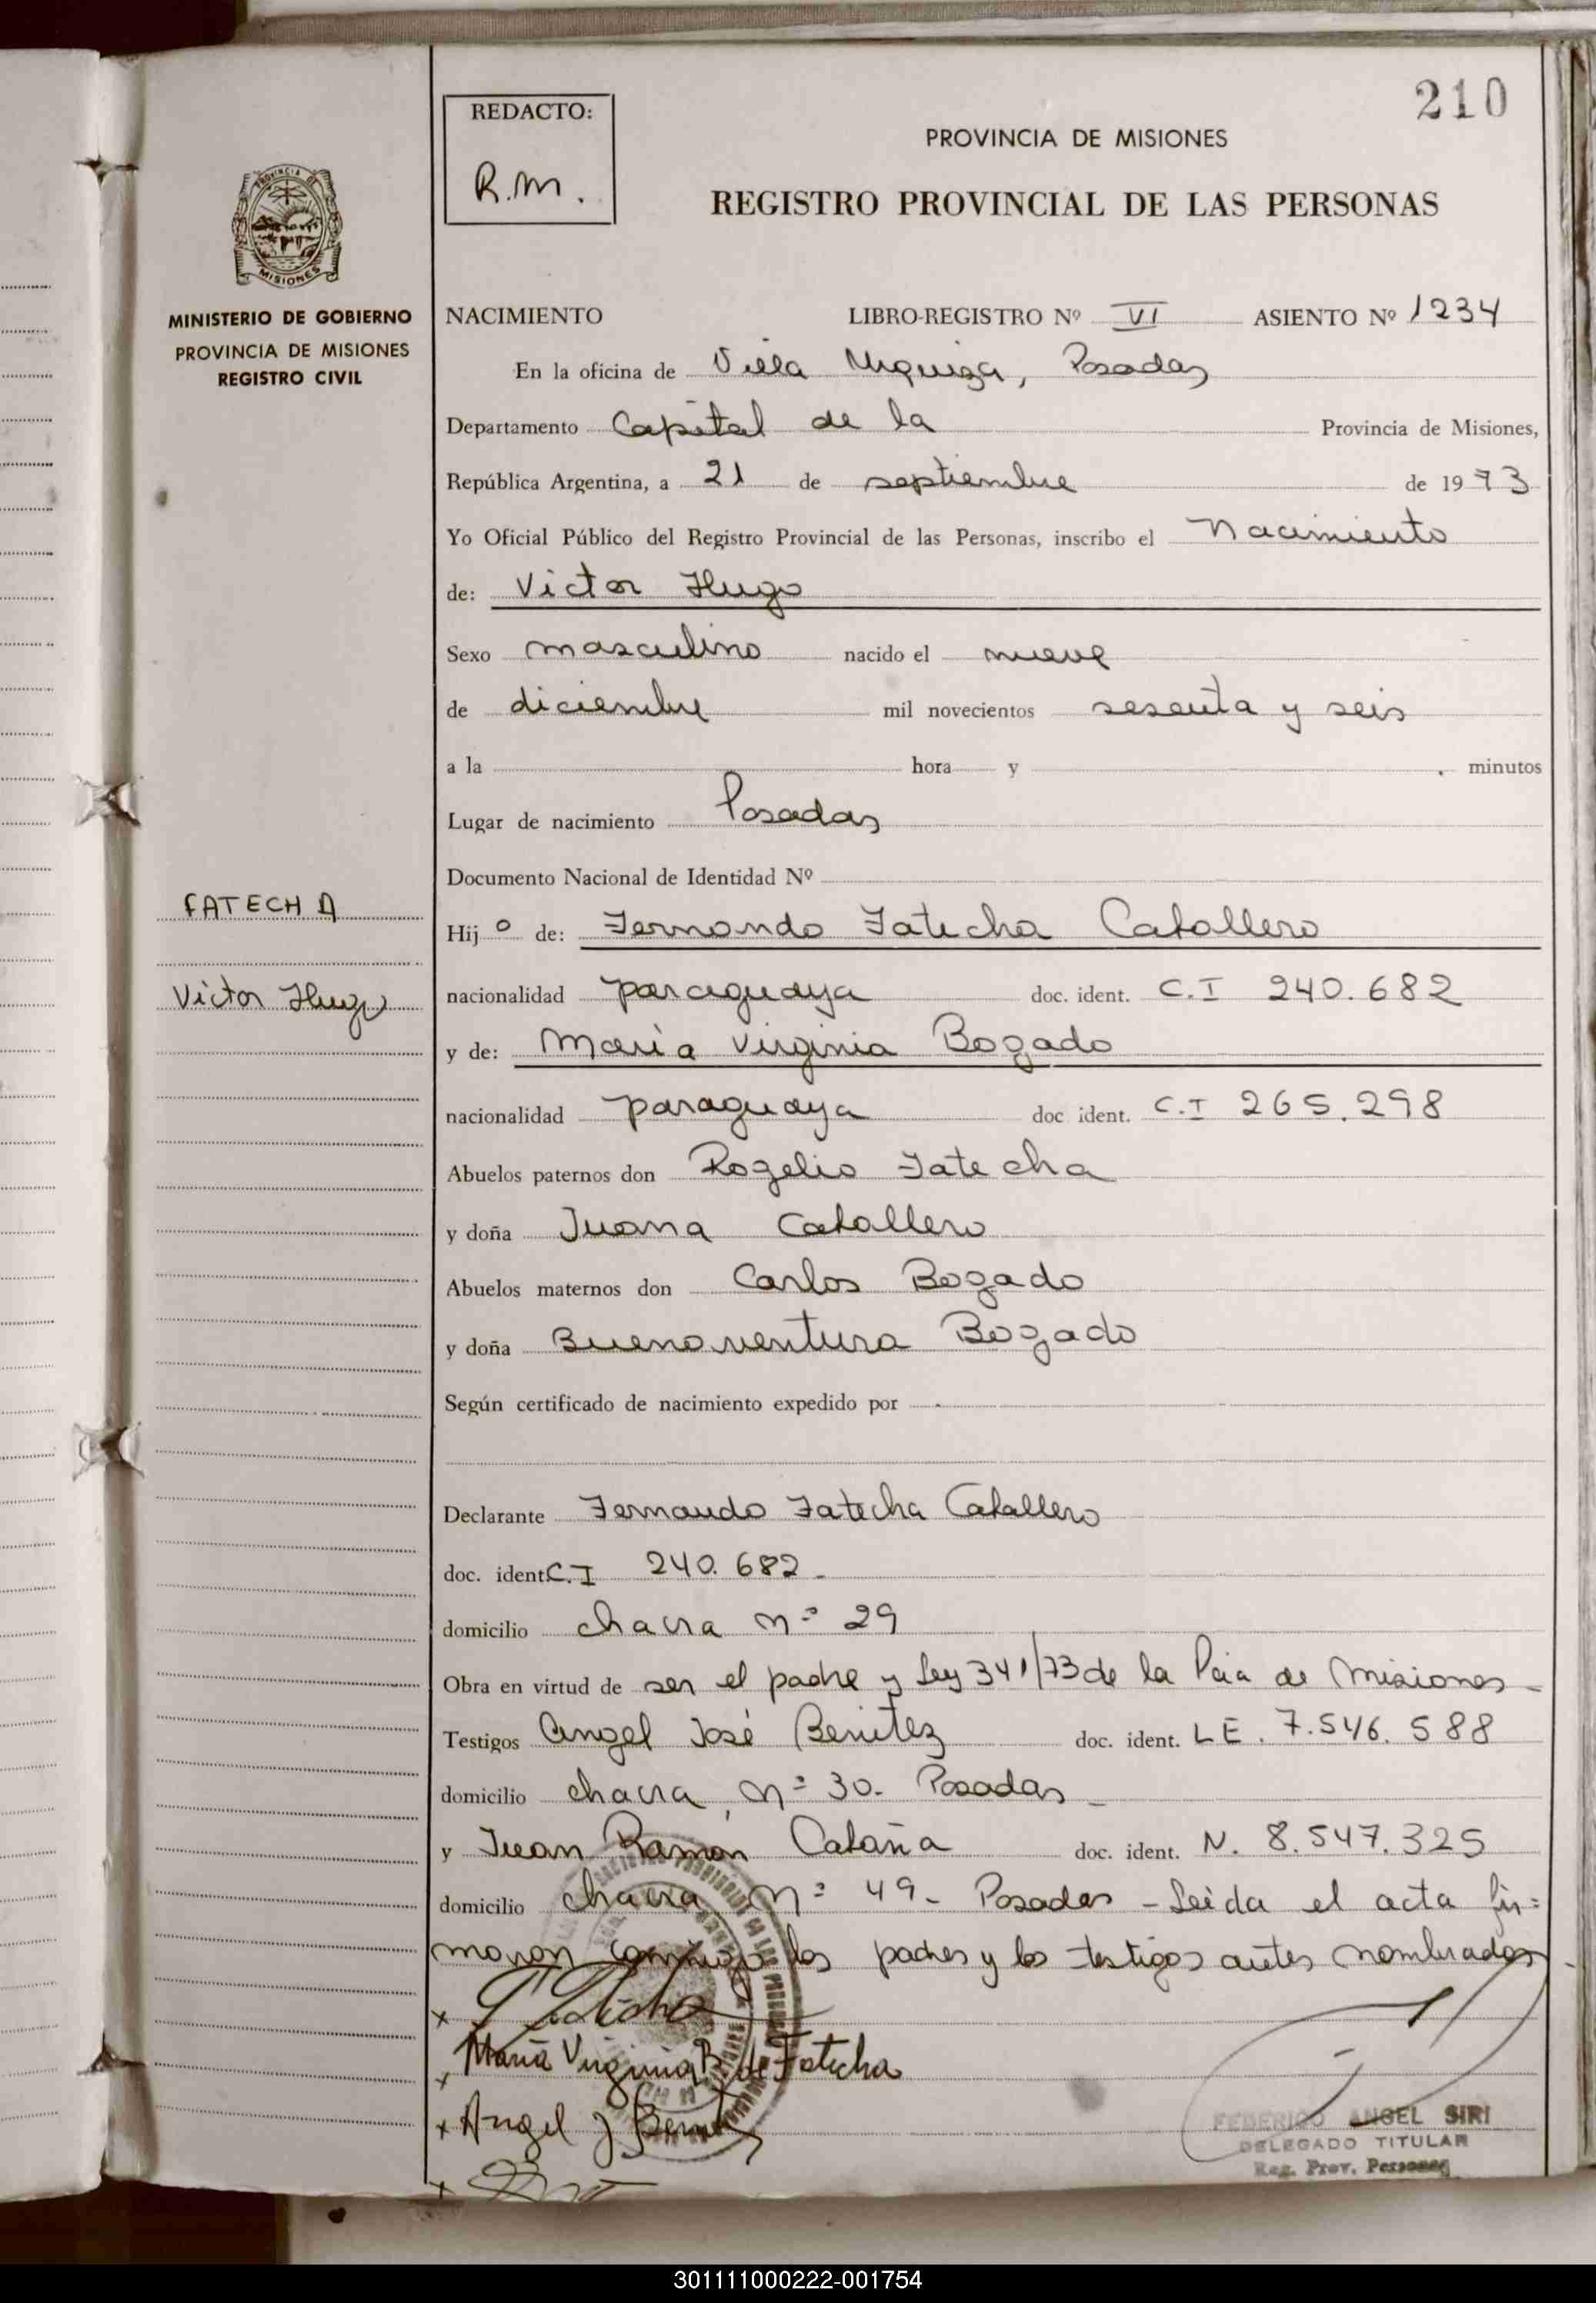 210
REDACTO:
R.M.
PROVINCIA DE MISIONES
REGISTRO PROVINCIAL DE LAS PERSONAS
PROVINCIA DE
MISIONES
MINISTERIO DE GOBIERNO
PROVINCIA DE MISIONES
REGISTRO CIVIL
NACIMIENTO LIBRO-REGISTRO Nº VI ASIENTO Nº 1234
En la oficina de Villa Urquiza, Posadas
Departamento Capital de la Provincia de Misiones,
República Argentina, a 21 de septiembre de 1973
Yo Oficial Público del Registro Provincial de las Personas, inscribo el Nacimiento
de: Victor Hugo
Sexo masculino nacido el nueve
de diciembre mil novecientos sesenta y seis
a la hora y minutos
Lugar de nacimiento Posadas
Documento Nacional de Identidad Nº
FATECHA
Hijo de: Fernando Fatecha Caballero
Victor Hugo
nacionalidad paraguaya doc. ident. C.I 240.682
y de: María Virginia Bogado
nacionalidad paraguaya doc ident. C.I 265.298
Abuelos paternos don Rogelio Fatecha
y doña Juana Caballero
Abuelos maternos don Carlos Bogado
y doña Buenaventura Bogado
Según certificado de nacimiento expedido por
Declarante Fernando Fatecha Caballero
doc. ident C.I 240.682
domicilio chacra Nº 29
Obra en virtud de ser el padre y Ley 341/73 de la Pcia de Misiones
Testigos Angel José Benitez doc. ident. LE. 7.546.588
domicilio chacra Nº 30. Posadas
y Juan Ramón Cabaña doc. ident. N. 8.547.325
domicilio chacra Nº 49- Posadas - Leida el acta fir=
maron conmigo los padres y los testigos antes nombrados
x Fatecha
x María Virginia B. de Fatecha
x Angel J Benitez
x
FEDERICO ANGEL SIRI
DELEGADO TITULAR
Reg. Prov. Personas
301111000222-001754